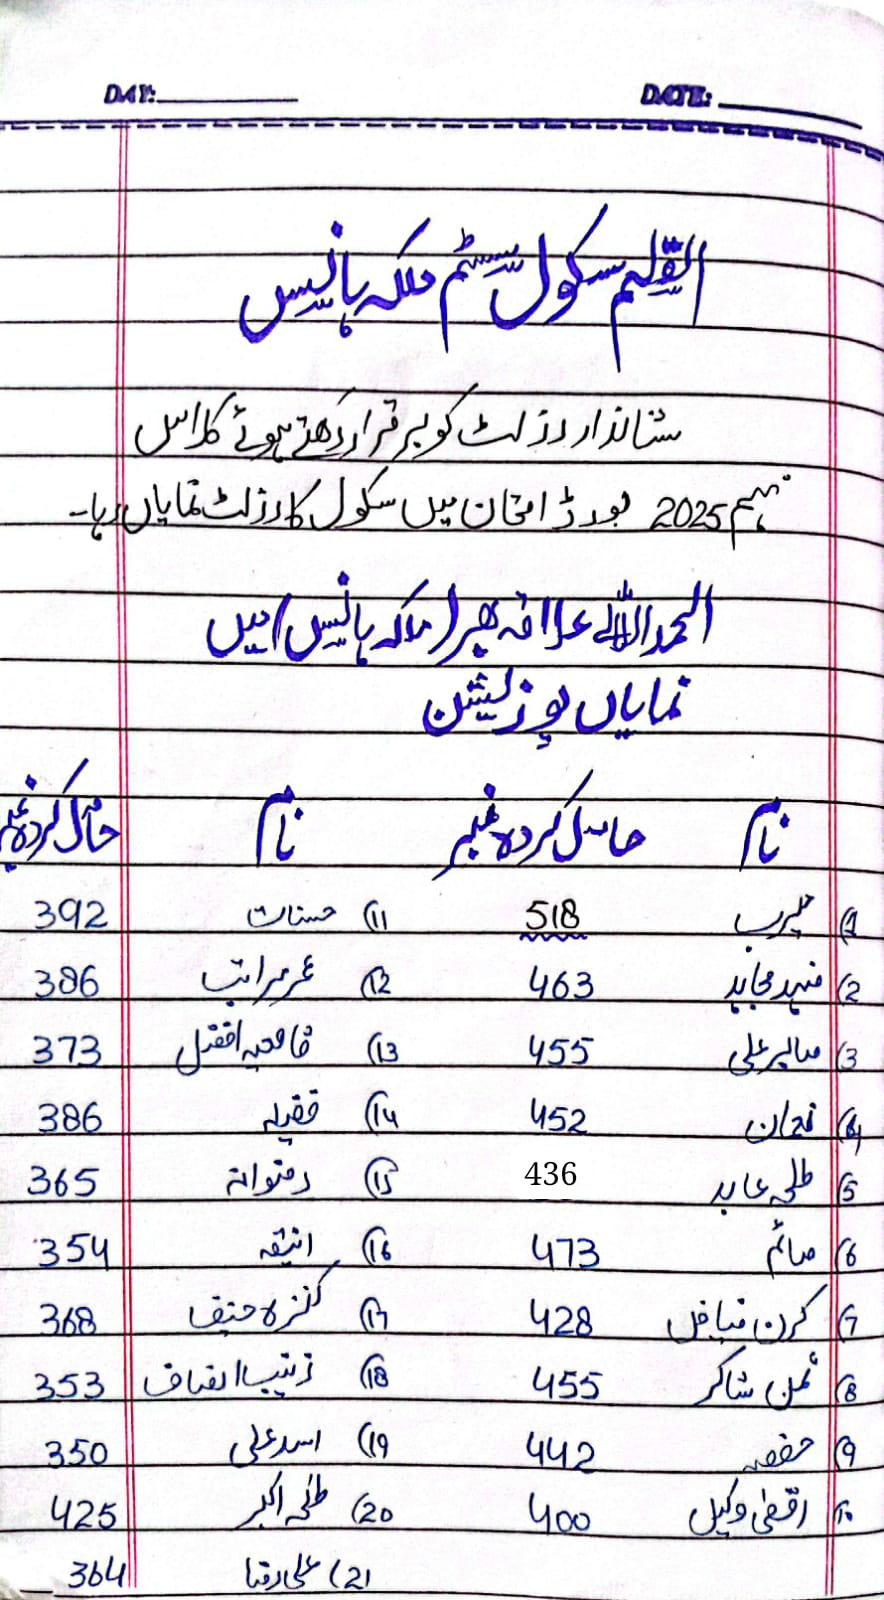 DAY: DATE:
القلم سکول سسٹم ملکہ ہانس
شاندار رزلٹ کو برقرار رکھتے ہوئے کلاس
نہم 2025 بورڈ امتحان میں سکول کا رزلٹ نمایاں رہا۔
الحمداللہ علاقہ بھر (ملکہ ہانس) میں
نمایاں پوزیشن
نام حاصل کردہ نمبر نام حاصل کردہ نمبر
1) 518 11) حسنات 392
2) فہد مجاہد 463 12) عمر مراتب 386
3) صابر علی 455 13) افضل 373
4) 452 14) 386
5) طلحہ عابد 436 15) رضوانہ 365
6) صائم 473 16) انیقہ 354
7) کرن فیاض 428 17) کنزہ حنیف 368
8) ثمن شاکر 455 18) زینب انصاف 353
9) حفصہ 442 19) اسد علی 350
10) اقصٰی وکیل 400 20) طلحہ اکبر 425
21) علی رضا 364